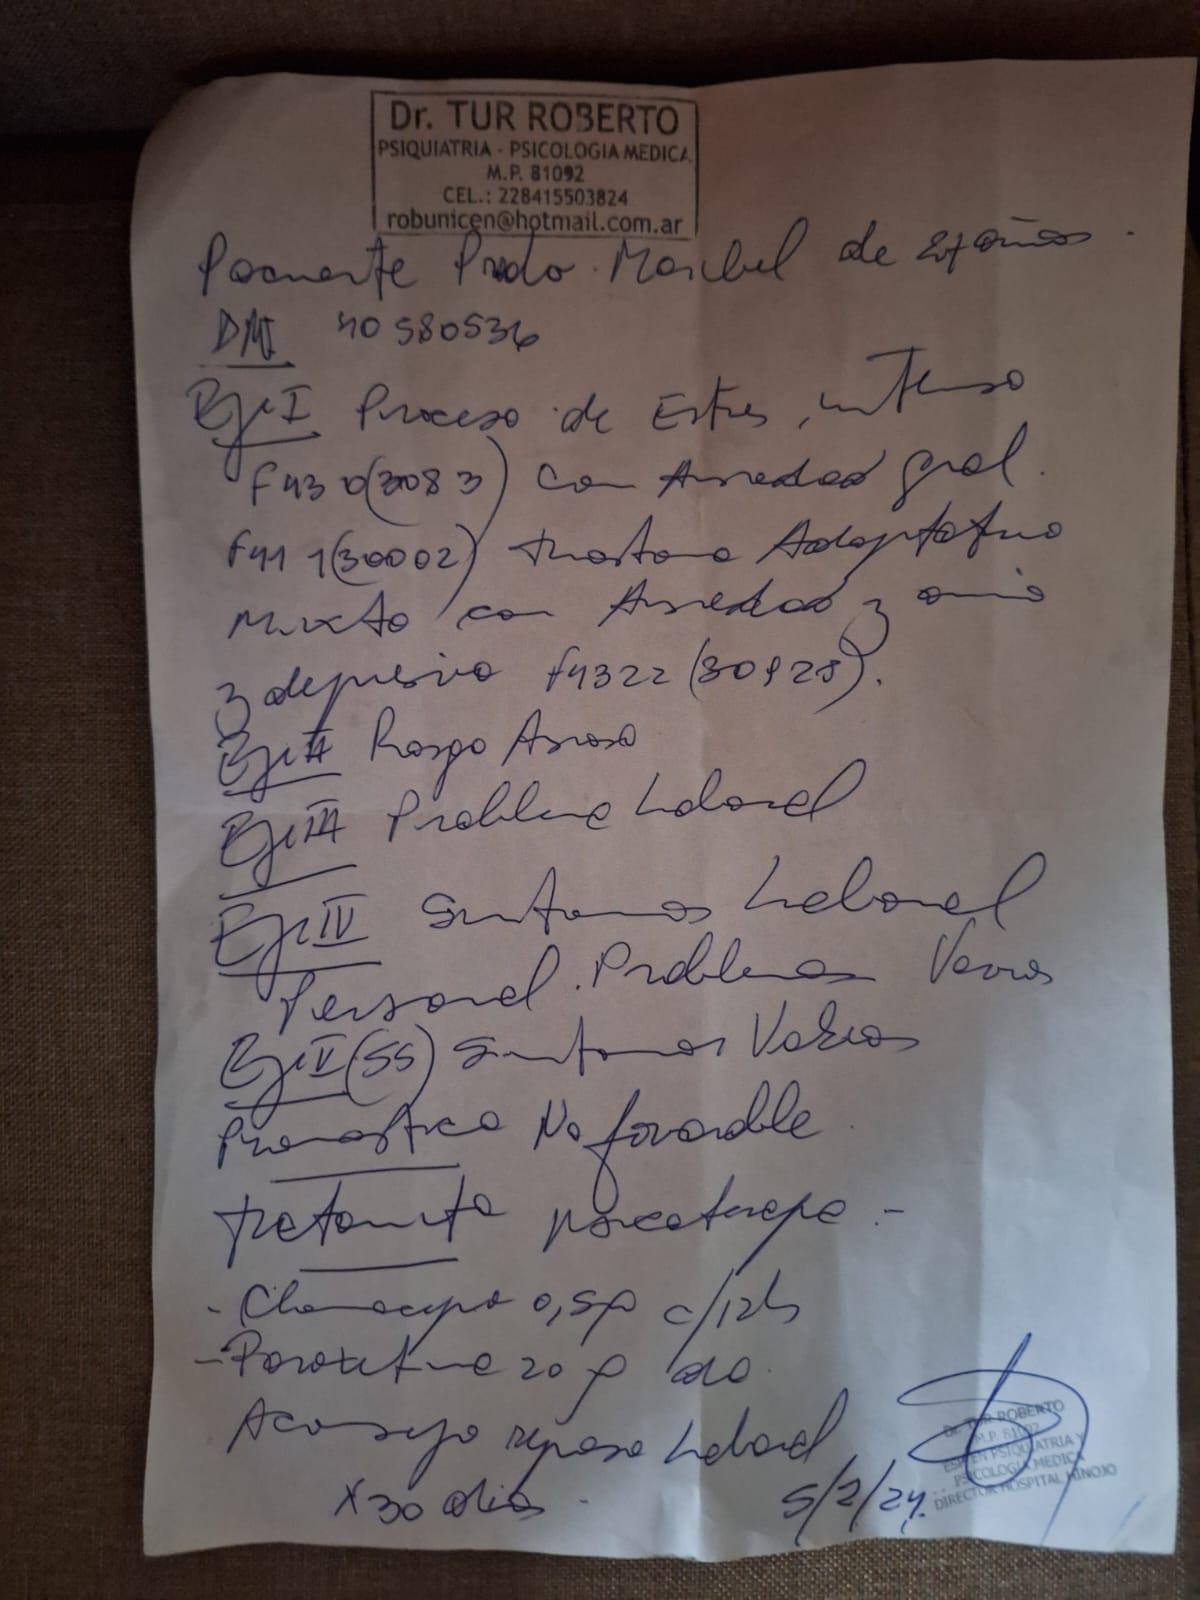 Dr. TUR ROBERTO
PSIQUIATRIA - PSICOLOGIA MEDICA
M.P. 81092
CEL.: 228415503824
robunicen@hotmail.com.ar
Paciente Prado Maribel de años
DNI 40580536
Eje I Proceso de Estres, intenso
F43 0(3083) con Ansiedad gral.
F41 1(30002) trastorno Adaptativo
Mixto con Ansiedad y
y depresivo F4322 (30928).
Eje II Rasgo Ansioso
Eje III Problema Laboral
Eje IV Sintomas Laboral
Personal. Problemas Varios
Eje V (55) Sintomas Varios
Pronostico No favorable
Tratamiento psicoterapia.-
- Clonazepan 0,5 c/12h
- Paroxetina 20
Aconsejo reposo Laboral
x 30 dias - 5/2/24.
Dr. TUR ROBERTO
M.P. 81092
ESP. EN PSIQUIATRIA Y
PSICOLOGIA MEDICA
DIRECTOR HOSPITAL HINOJO